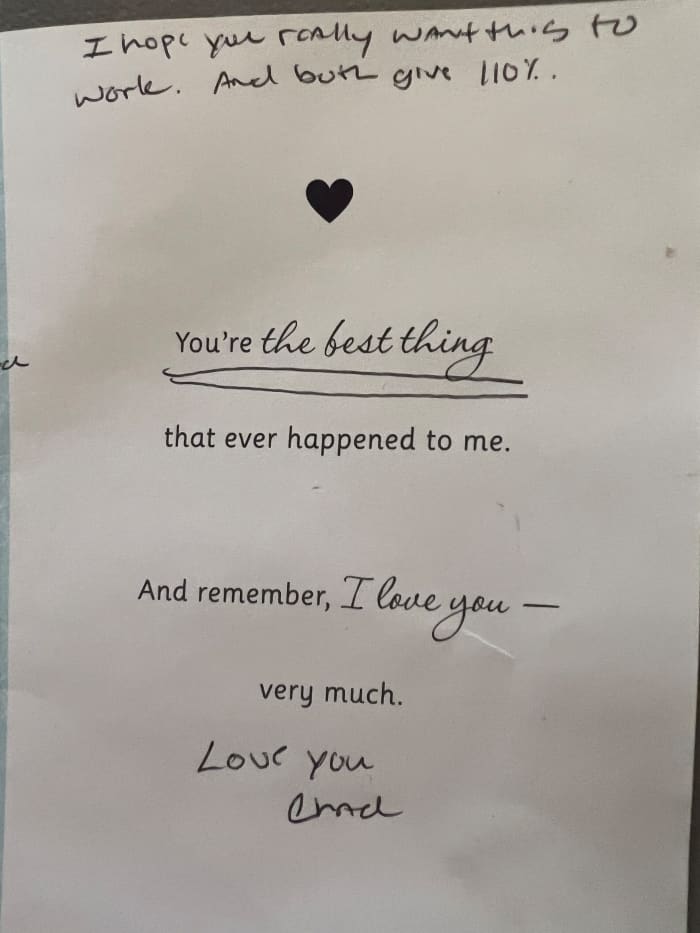 I hope you really want this to
work. And both give 110%.
You're the best thing
that ever happened to me.
And remember, I love you —
very much.
Love you
Chad